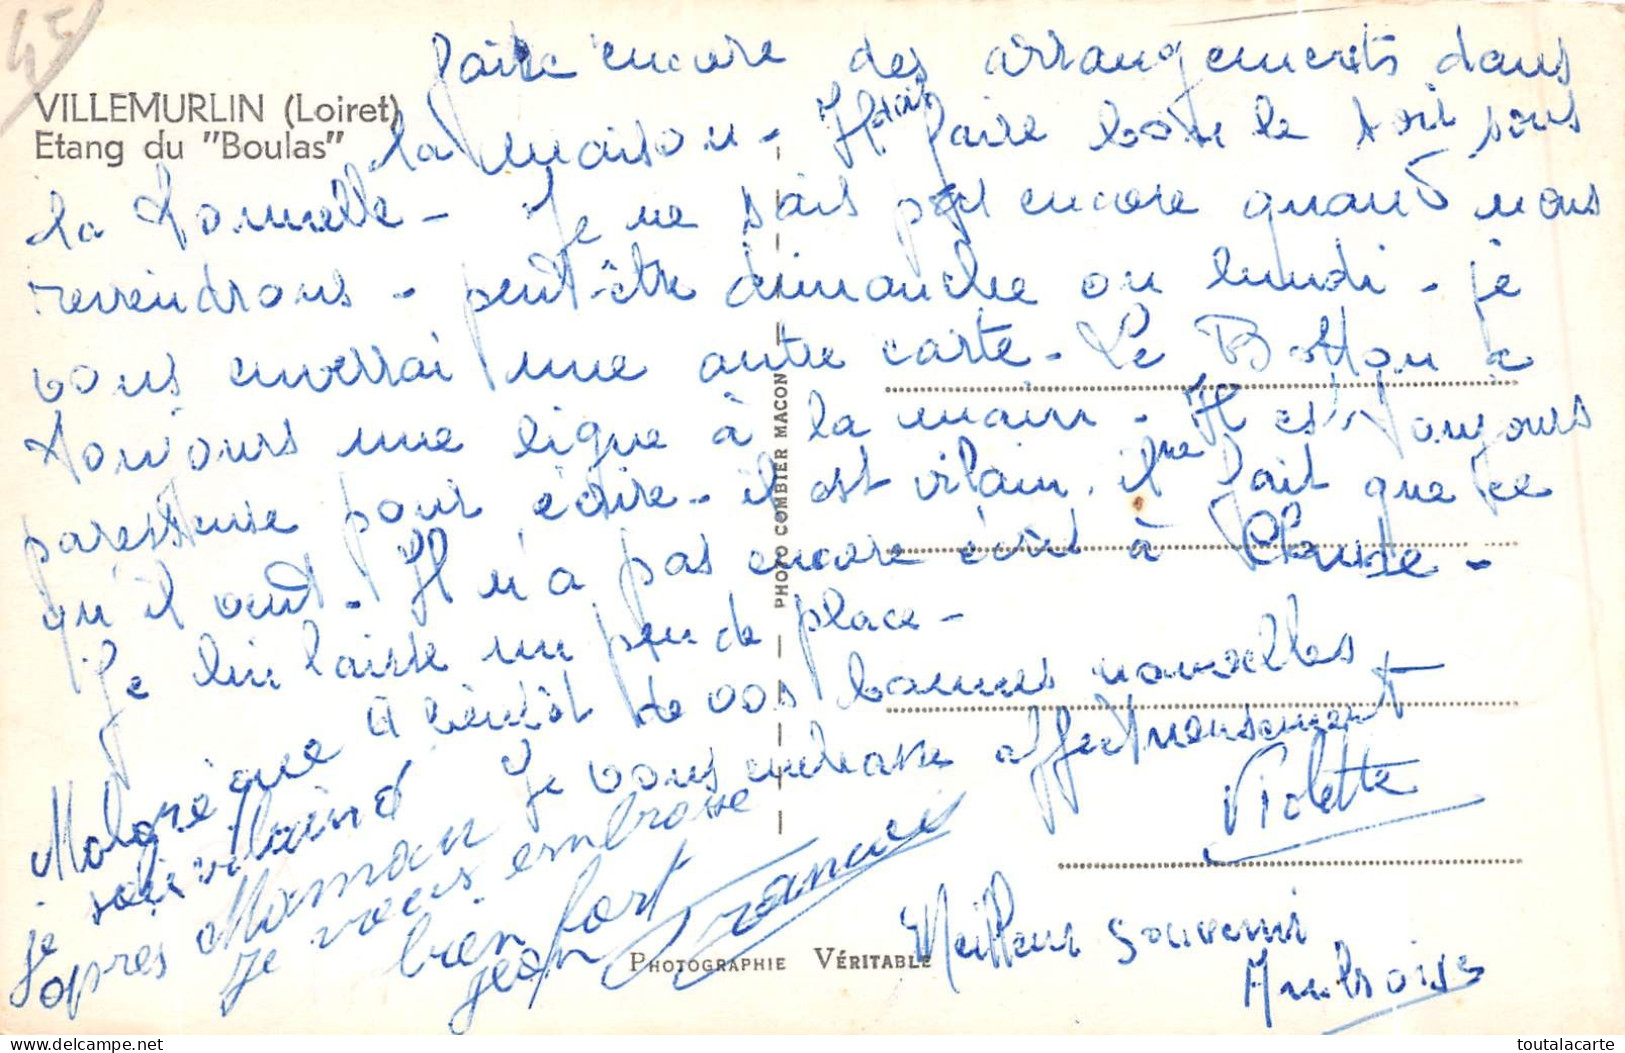 45
VILLEMURLIN (Loiret)
Etang du "Boulas"
faire encore des arrangements dans
la maison - Il faire le toit sous
la tonnelle - Je ne sais pas encore quand nous
reviendrons - peut-être dimanche ou lundi - je
vous enverrai une autre carte - Le a
toujours une ligne à la main - Il est toujours
paresseuse pour écrire - il est vilain, il ne fait que ce
qu'il veut - Il n'a pas encore écrit à Claude -
Je lui laisse un peu de place -
A bientôt de vos bonnes nouvelles
Je vous embrasse affectueusement
Violette
Malgré que
je soi vilaind
opres Maman
je vous embrasse
bien fort
Jean Francis
Meilleur souvenir
Ambroise
PHOTO COMBIER MACON
PHOTOGRAPHIE VÉRITABLE
toutalacarte